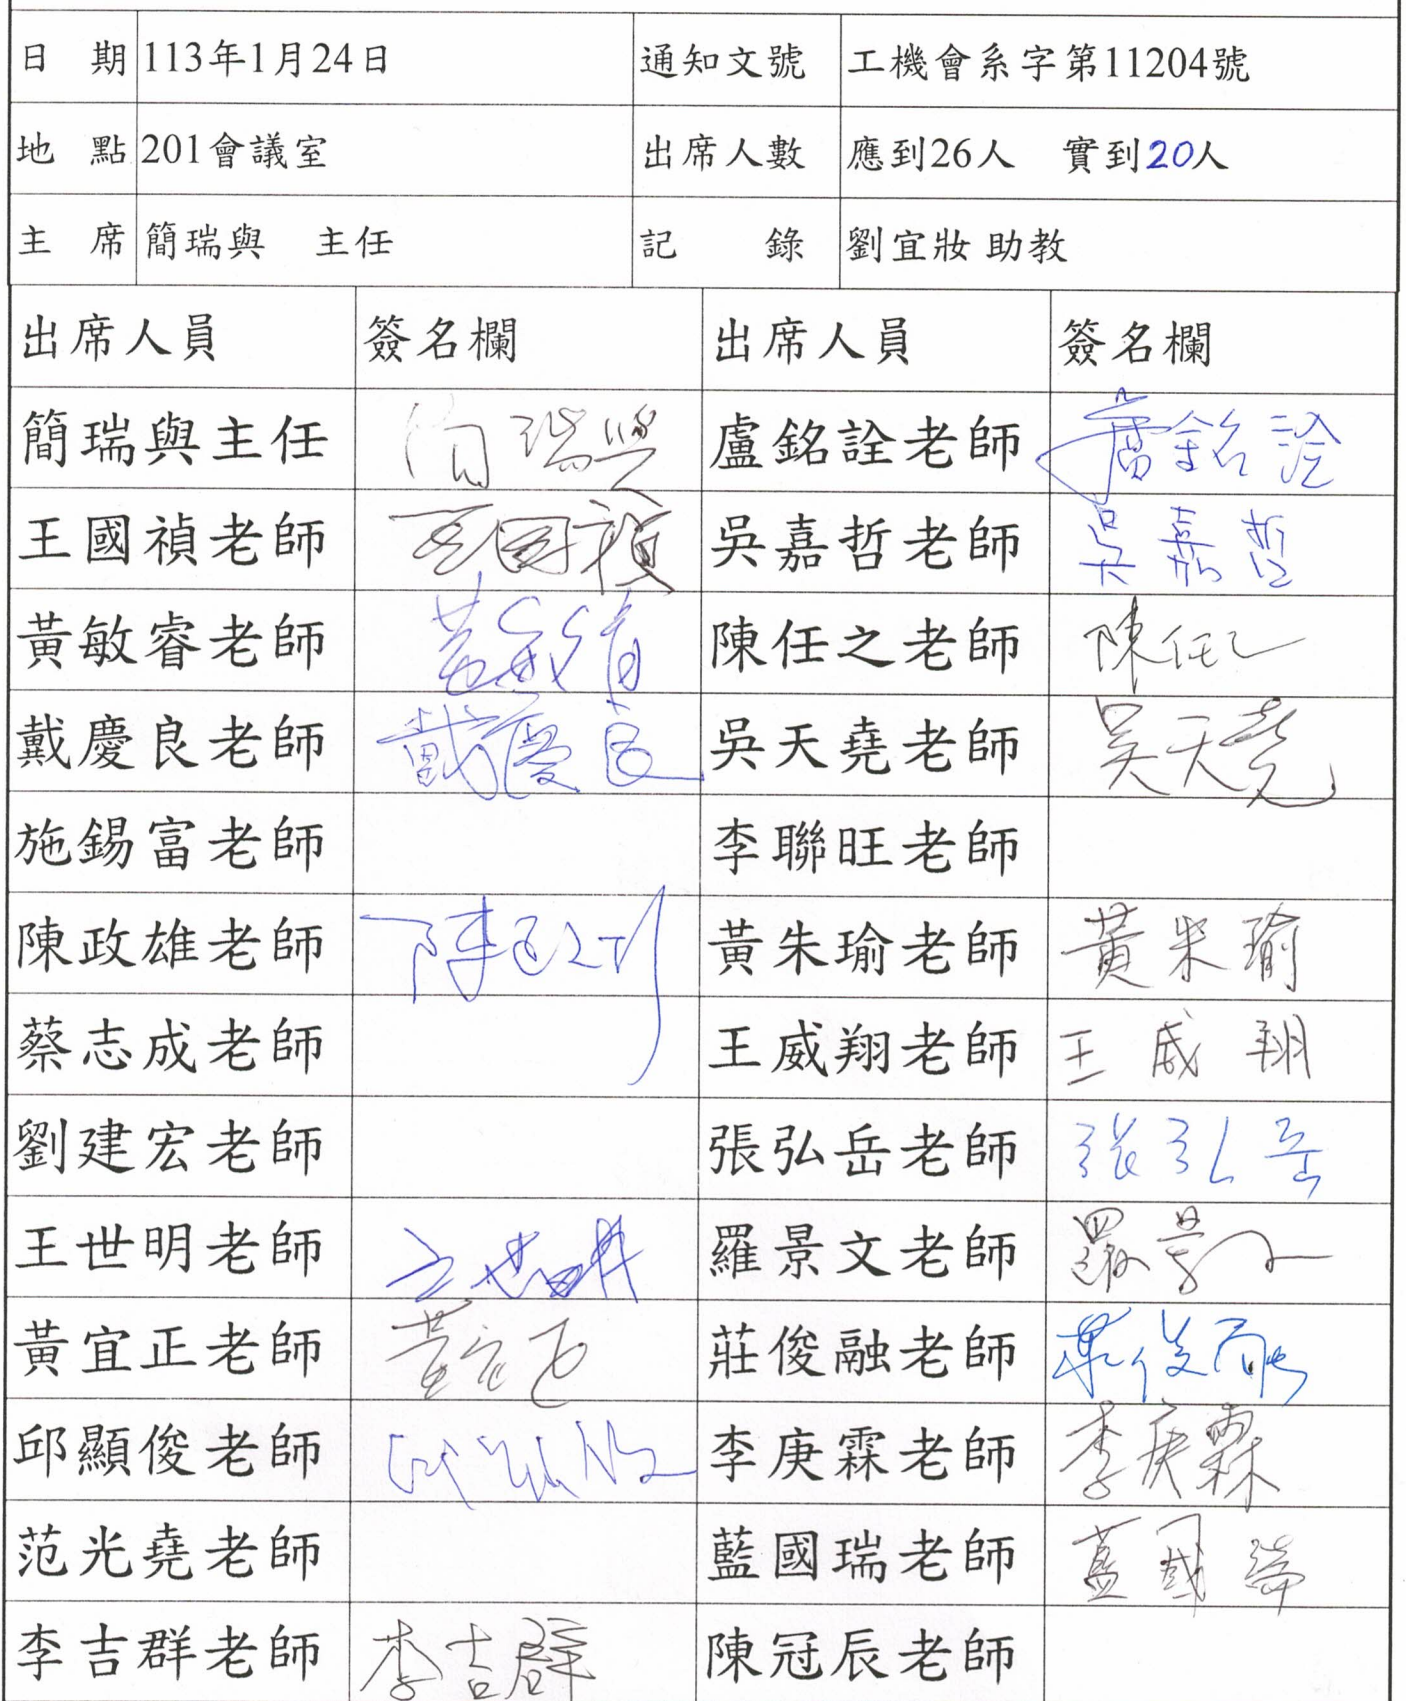 日 期 113年1月24日 通知文號 工機會系字第11204號
地 點 201會議室 出席人數 應到26人 實到20人
主 席 簡瑞與 主任 記 錄 劉宜妝 助教
出席人員 簽名欄 出席人員 簽名欄
簡瑞與主任 簡瑞與 盧銘詮老師 盧銘詮
王國禎老師 王國禎 吳嘉哲老師 吳嘉哲
黃敏睿老師 黃敏睿 陳任之老師 陳任之
戴慶良老師 戴慶良 吳天堯老師 吳天堯
施錫富老師 李聯旺老師
陳政雄老師 陳政雄 黃朱瑜老師 黃朱瑜
蔡志成老師 王威翔老師 王威翔
劉建宏老師 張弘岳老師 張弘岳
王世明老師 王世明 羅景文老師 羅景文
黃宜正老師 黃宜正 莊俊融老師 莊俊融
邱顯俊老師 邱顯俊 李庚霖老師 李庚霖
范光堯老師 藍國瑞老師 藍國瑞
李吉群老師 李吉群 陳冠辰老師